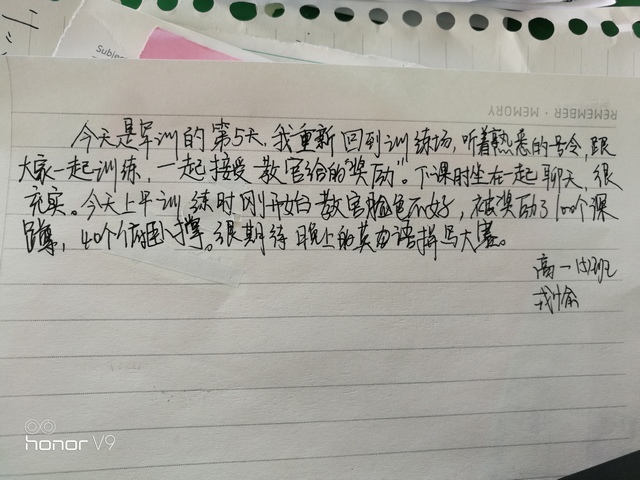 Subjec
REMEMBER · MEMORY
今天是军训的第5天,我重新回到训练场,听着熟悉的号令,跟
大家一起训练,一起接受教官给的"奖励"。下课时坐在一起聊天,很
充实。今天上午训练时刚开始白教官脸色不好,被奖励了100个深
蹲,40个俯卧撑。很期待晚上的英语拼写大赛。
高一 班
honor V9